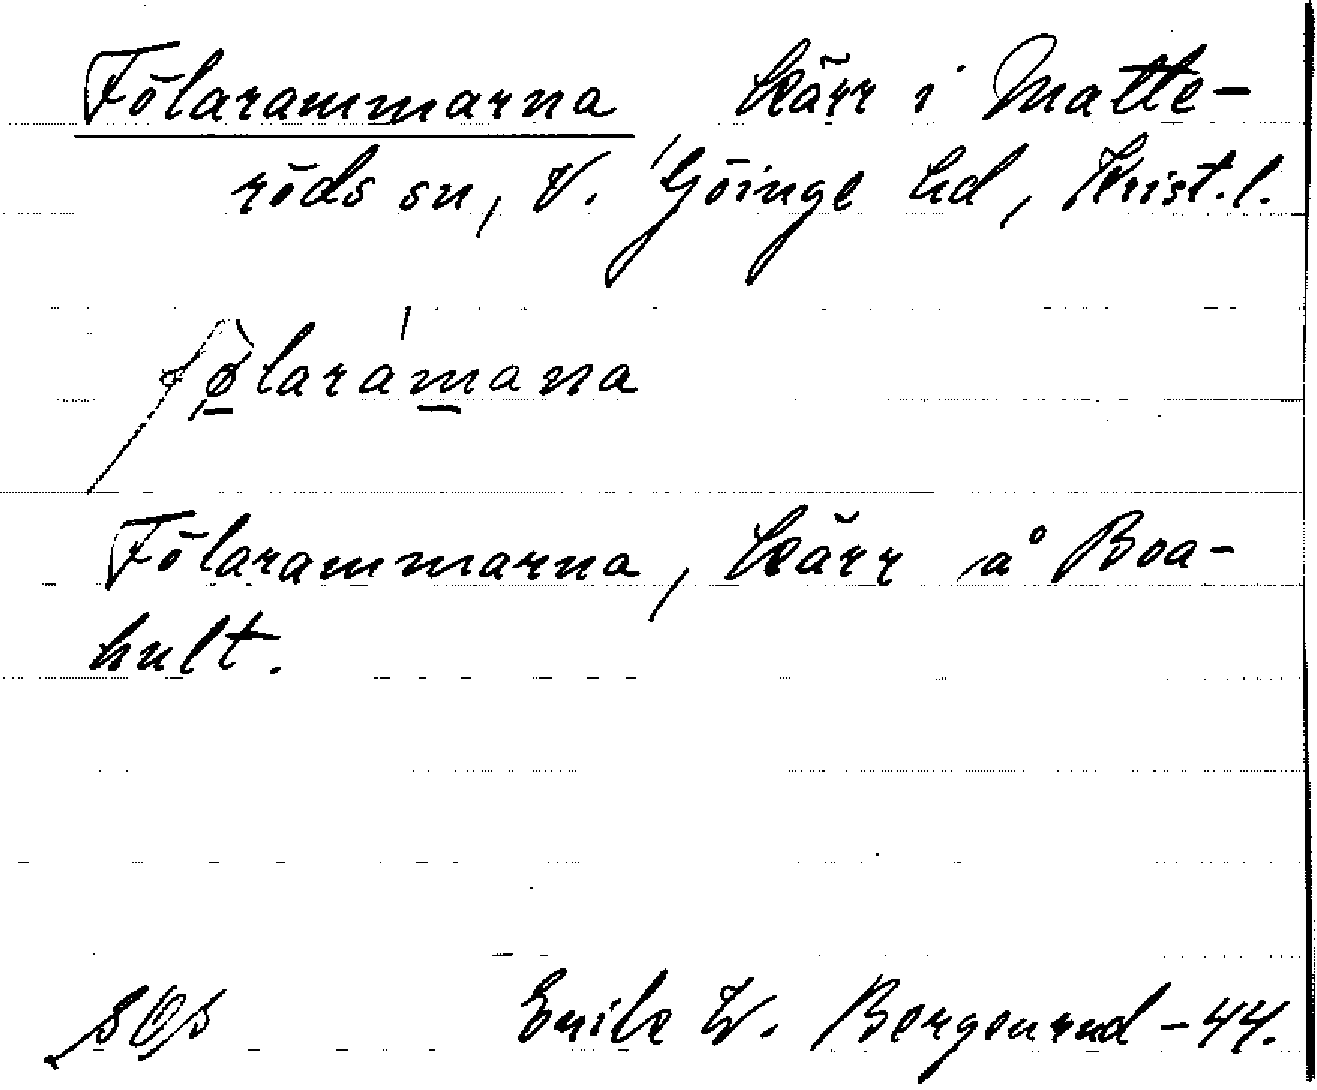 Fölarammarna, kärr i Matte-
röds sn, V. Göinge hd, Krist. l.
fø̱larám̱ana
Fölarammarna, kärr å Boa-
hult.
sØs Erik W. Bergenrud -44.